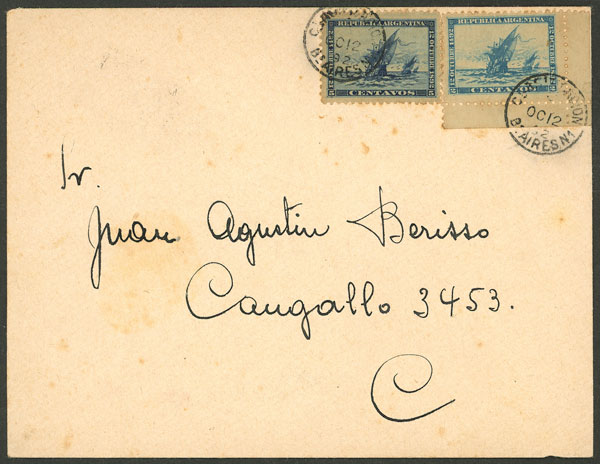 REPUBLICA ARGENTINA
12 OCTUBRE 1492
12 OCTUBRE 1892
CENTAVOS
REPUBLICA ARGENTINA
12 OCTUBRE 1492
12 OCTUBRE 1892
CENTAVOS
OC 12
92
Bs AIRES
OC 12
Bs AIRES N1
Sr.
Juan Agustin Berisso
Cangallo 3453.
C